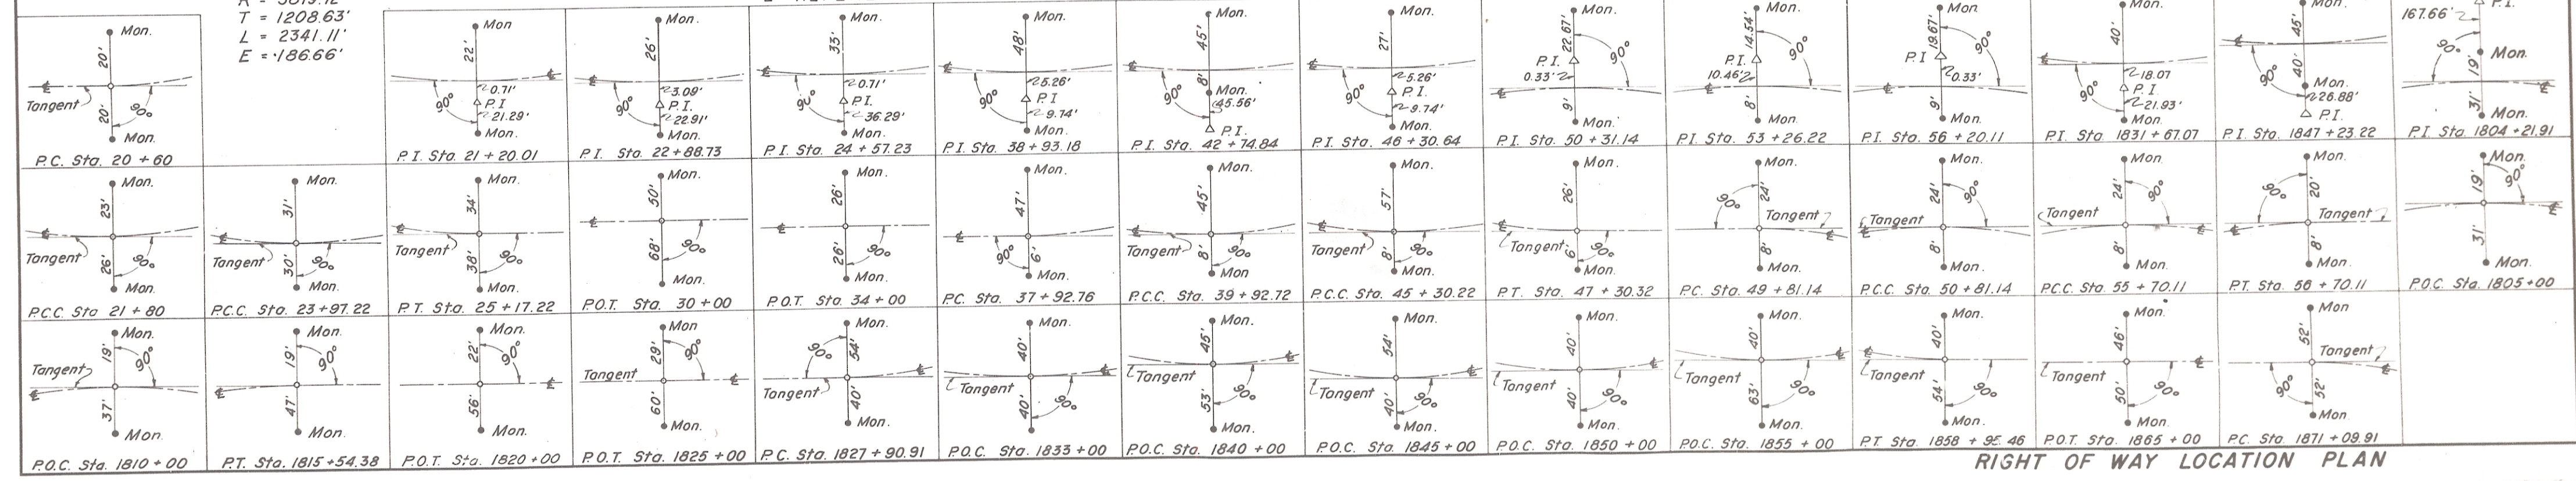 T = 1208.63'
L = 2341.11'
E = 186.66'
Mon.
20'
Tangent
20'
90°
Mon.
P.C. Sta. 20 + 60
Mon
22'
0.71'
90°
P.I
21.29'
Mon.
P.I. Sta. 21 + 20.01
Mon.
26'
3.09'
90°
P.I.
22.91'
Mon.
P.I. Sta. 22 + 88.73
Mon.
33'
0.71'
90°
P.I.
36.29'
Mon.
P.I. Sta. 24 + 57.23
Mon.
48'
5.26'
90°
P.I
9.74'
Mon.
P.I. Sta. 38 + 93.18
Mon.
45'
8'
90°
Mon.
45.56'
P.I.
P.I. Sta. 42 + 74.84
Mon.
27'
5.26'
90°
P.I.
9.74'
Mon.
P.I. Sta. 46 + 30.64
Mon.
22.67'
90°
P.I.
0.33'
9'
Mon.
P.I. Sta. 50 + 31.14
Mon.
14.54'
90°
P.I.
10.46'
8'
Mon.
P.I. Sta. 53 + 26.22
Mon
19.67'
90°
P.I
0.33'
9'
Mon.
P.I. Sta. 56 + 20.11
Mon.
40'
18.07
90°
P.I.
21.93'
Mon.
P.I. Sta. 1831 + 67.07
Mon.
45'
90°
40'
Mon.
26.88'
P.I.
P.I. Sta. 1847 + 23.22
P.I.
167.66'
90°
Mon.
19'
31'
Mon.
P.I. Sta. 1804 + 21.91
Mon.
23'
Tangent
26'
90°
Mon.
P.C.C. Sta 21 + 80
Mon.
31'
Tangent
30'
90°
Mon.
P.C.C. Sta. 23 + 97.22
Mon.
34'
Tangent
38'
90°
Mon.
P.T. Sta. 25 + 17.22
Mon.
50'
68'
90°
Mon.
P.O.T. Sta. 30 + 00
Mon.
26'
26'
90°
Mon.
P.O.T. Sta. 34 + 00
Mon.
47'
90°
6'
Mon.
P.C. Sta. 37 + 92.76
Mon.
45'
Tangent
8'
90°
Mon
P.C.C. Sta. 39 + 92.72
Mon.
57'
Tangent
8'
90°
Mon.
P.C.C. Sta. 45 + 30.22
Mon.
26'
Tangent
6'
90°
Mon.
P.T. Sta. 47 + 30.32
Mon.
90°
24'
Tangent
8'
Mon.
P.C. Sta. 49 + 81.14
Mon.
24'
90°
Tangent
8'
Mon.
P.C.C. Sta. 50 + 81.14
Mon.
24'
90°
Tangent
8'
Mon.
P.C.C. Sta. 55 + 70.11
Mon.
90°
20'
Tangent
8'
Mon.
P.T. Sta. 56 + 70.11
Mon.
19'
90°
31'
Mon.
P.O.C. Sta. 1805 + 00
Mon.
19'
90°
Tangent
37'
Mon.
P.O.C. Sta. 1810 + 00
Mon.
19'
90°
47'
Mon.
P.T. Sta. 1815 + 54.38
Mon.
22'
90°
56'
Mon.
P.O.T. Sta. 1820 + 00
Mon
29'
90°
Tangent
60'
Mon.
P.O.T. Sta. 1825 + 00
Mon.
90°
54'
Tangent
40'
Mon.
P.C. Sta. 1827 + 90.91
Mon.
40'
Tangent
40'
90°
Mon.
P.O.C. Sta. 1833 + 00
Mon.
45'
Tangent
53'
90°
Mon.
P.O.C. Sta. 1840 + 00
Mon.
54'
Tangent
40'
90°
Mon.
P.O.C. Sta. 1845 + 00
Mon.
40'
Tangent
40'
90°
Mon.
P.O.C. Sta. 1850 + 00
Mon.
40'
Tangent
63'
90°
Mon.
P.O.C. Sta. 1855 + 00
Mon.
40'
Tangent
54'
90°
Mon.
P.T. Sta. 1858 + 95.46
Mon.
46'
Tangent
50'
90°
Mon.
P.O.T. Sta. 1865 + 00
Mon
52'
Tangent
90°
52'
Mon
P.C. Sta. 1871 + 09.91
RIGHT OF WAY LOCATION PLAN